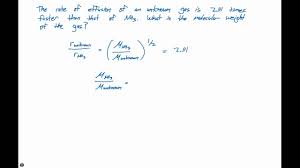 The rate of effusion of an unknown gas is 2.91 times
faster than that of NH₃. What is the molecular weight
of the gas?
r_unknown / r_NH₃ = (M_NH₃ / M_unknown)^1/2 = 2.91
M_NH₃ / M_unknown =